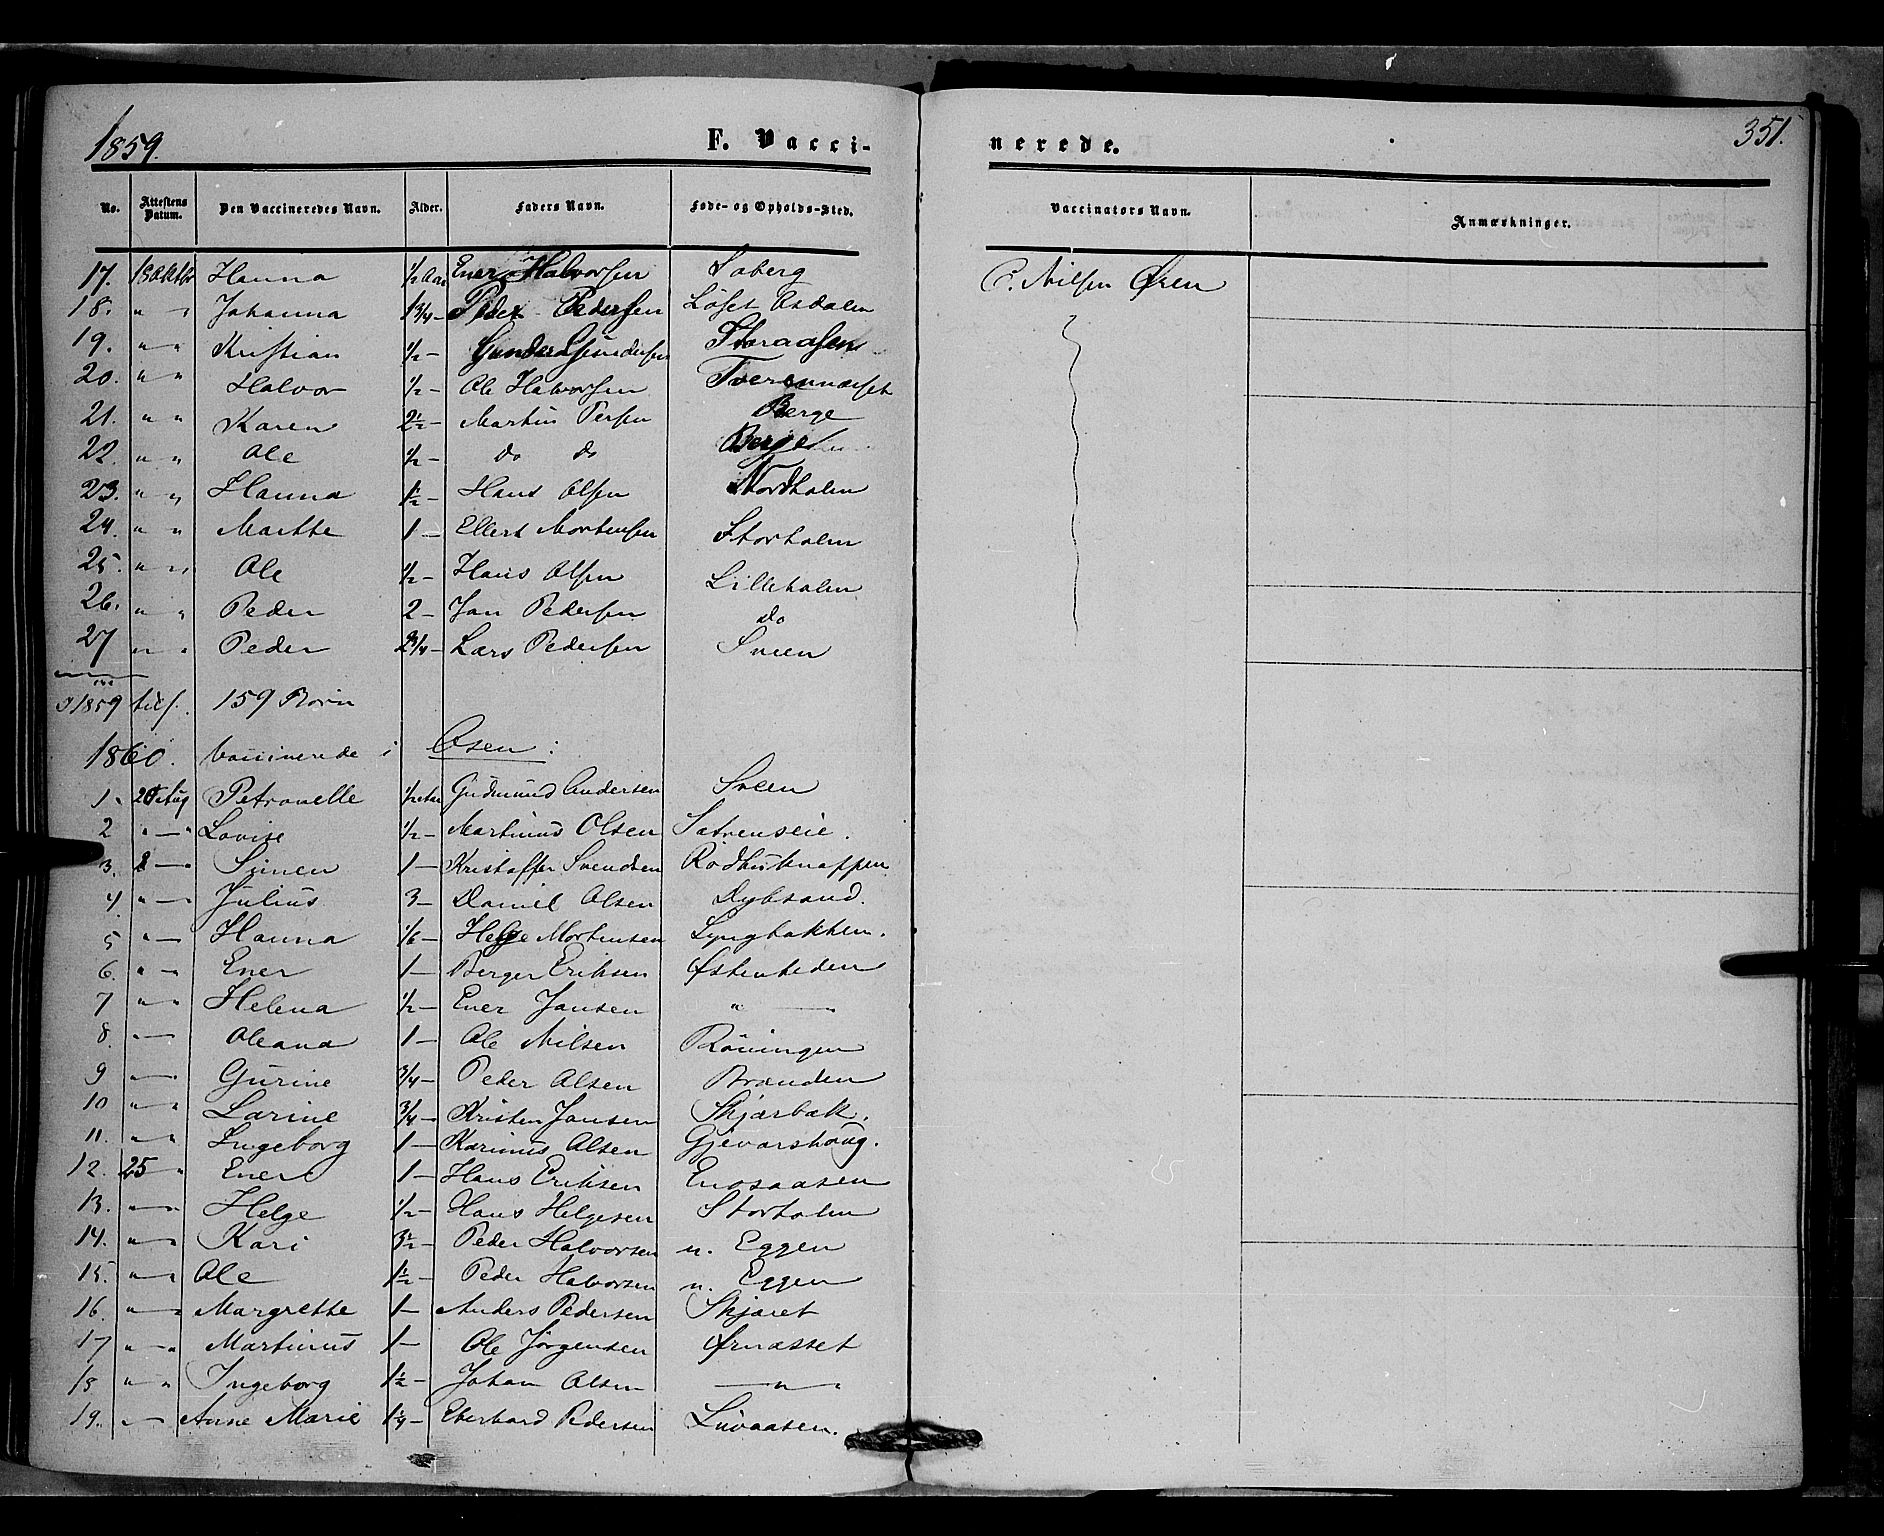 1859. F. Vacci-
nerede. 351.
No. Attestens Datum. Den Vaccineredes Navn. Alder. Faders Navn. Føde- og Opholds-Sted.
Vaccinators Navn. Anmærkninger.
17. Hanna 1/2 Aar Ener Halvorsen Soberg P. Nilsen Øren
18. " " Johanna 1 3/4 - Peder Pedersen Löset Osdalen
19. " " Kristian 1/2 - Gunder Gundersen Storaasen
20. " " Halvor 1/2 - Ole Halvorsen
21. " " Karen 2 1/2 - Martin Persen Berge
22. " " Ole 1/2 - do do Berge
23. " " Hanna 1 1/2 - Hans Olsen Nordholen
24. " " Marthe 1 - Ellert Mortensen Storholen
25. " " Ole 1/2 - Hans Olsen Lilleholen
26. " " Peder 2 - Jon Pedersen do
27 " " Peder 2 3/4 - Lars Pedersen Sveen
I 1859 tils. 159 Börn
1860. Vaccinerede i Osen:
1. Aug Petronelle 1/2 Aar Gudmund Andersen Sveen
2 " - " Lovise 1/2 - Martinus Olsen Sätrenseie.
3. 2 - " Simen 1 - Kristoffer Svendsen Rödhusknappen
4 " - Julius 3 - Daniel Olsen Dybsand.
5 " - Hanna 1/6 - Helge Mortensen Lyngbakken.
6. " - " Ener 1 - Berger Eriksen Østenheden
7 " " Helena 1/2 - Ener Jansen " -
8. " - Oleana 1 - Ole Nilsen Röningen
9 " - Gurine 3/4 - Peder Olsen Branden
10 " - " Larine 3/4 - Kristen Jansen Skjärbäk.
11. " - " Ingeborg 1 - Karinus Olsen Gjevarshaug.
12. 25 " Ener 1 - Hans Eriksen Enosaasen
13. " - " Helge 1/2 - Hans Helgesen Storholen
14. " - " Kari 3 1/2 - Peder Halvorsen n. Eggen
15. " - " Ole 1 1/2 - Peder Halvorsen n. Eggen
16. " - " Margrethe 1 - Anders Pedersen Skjäret
17 " - " Martinus 1 - Ole Jörgensen Ørnässet
18 " - " Ingeborg 1 1/2 - Johan Olsen - " -
19. " - Anne Marie 1 1/4 - Eberhard Pedersen Livaasen.